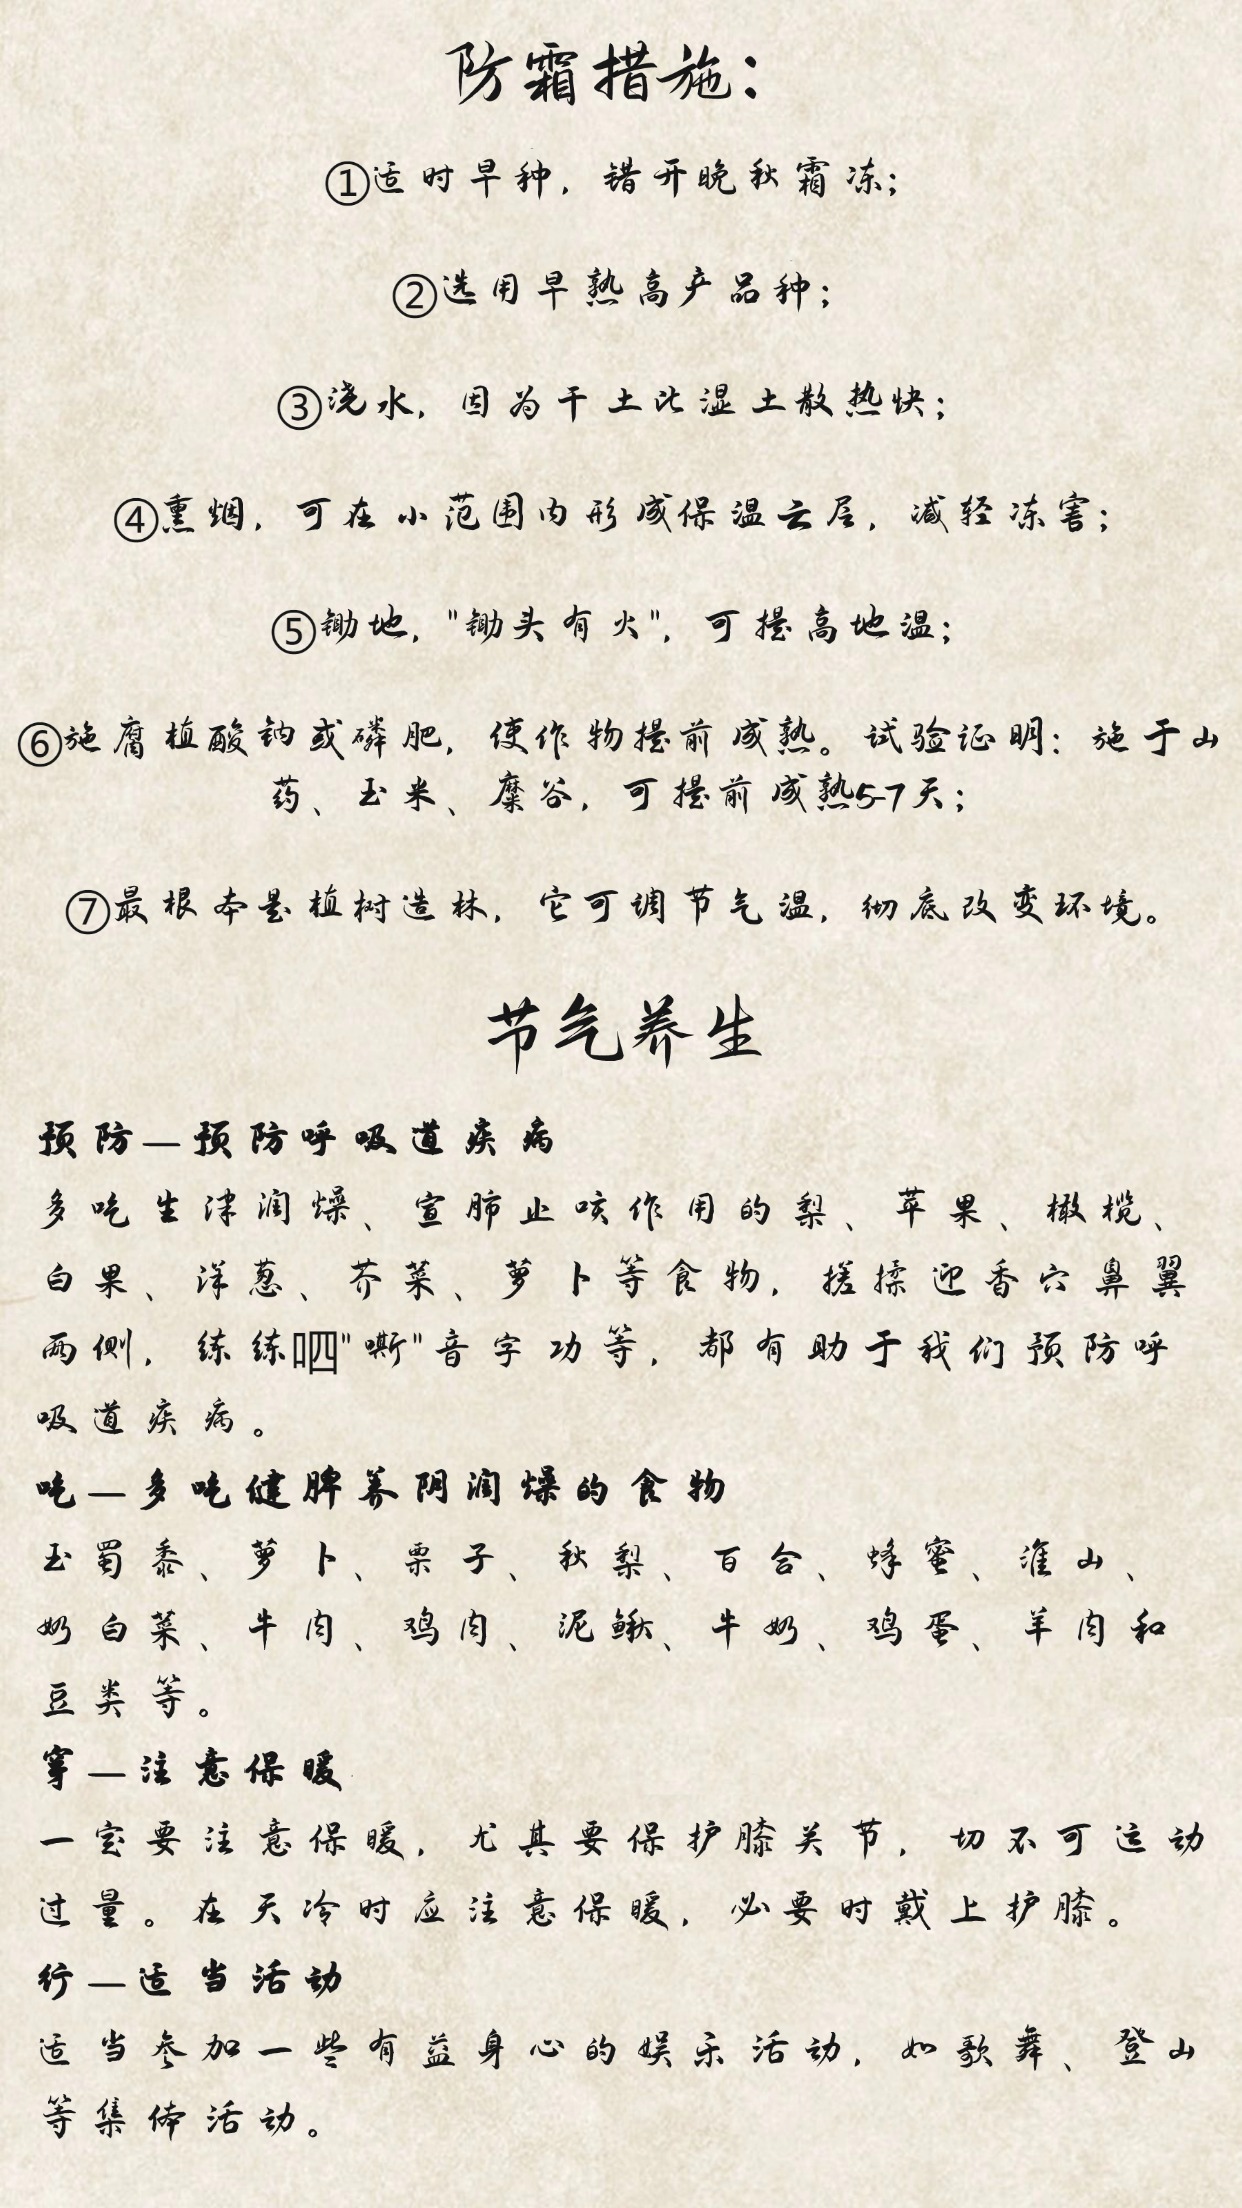 防霜措施：
①适时早种，错开晚秋霜冻；
②选用早熟高产品种；
③浇水，因为干土比湿土散热快；
④熏烟，可在小范围内形成保温云层，减轻冻害；
⑤锄地，"锄头有火"，可提高地温；
⑥施腐植酸钠或磷肥，使作物提前成熟。试验证明：施于山
药、玉米、糜谷，可提前成熟5-7天；
⑦最根本是植树造林，它可调节气温，彻底改变环境。
节气养生
预防—预防呼吸道疾病
多吃生津润燥、宣肺止咳作用的梨、苹果、橄榄、
白果、洋葱、芥菜、萝卜等食物，搓揉迎香穴鼻翼
两侧，练练呬"嘶"音字功等，都有助于我们预防呼
吸道疾病。
吃—多吃健脾养阴润燥的食物
玉蜀黍、萝卜、栗子、秋梨、百合、蜂蜜、淮山、
奶白菜、牛肉、鸡肉、泥鳅、牛奶、鸡蛋、羊肉和
豆类等。
穿—注意保暖
一定要注意保暖，尤其要保护膝关节，切不可运动
过量。在天冷时应注意保暖，必要时戴上护膝。
行—适当活动
适当参加一些有益身心的娱乐活动，如歌舞、登山
等集体活动。